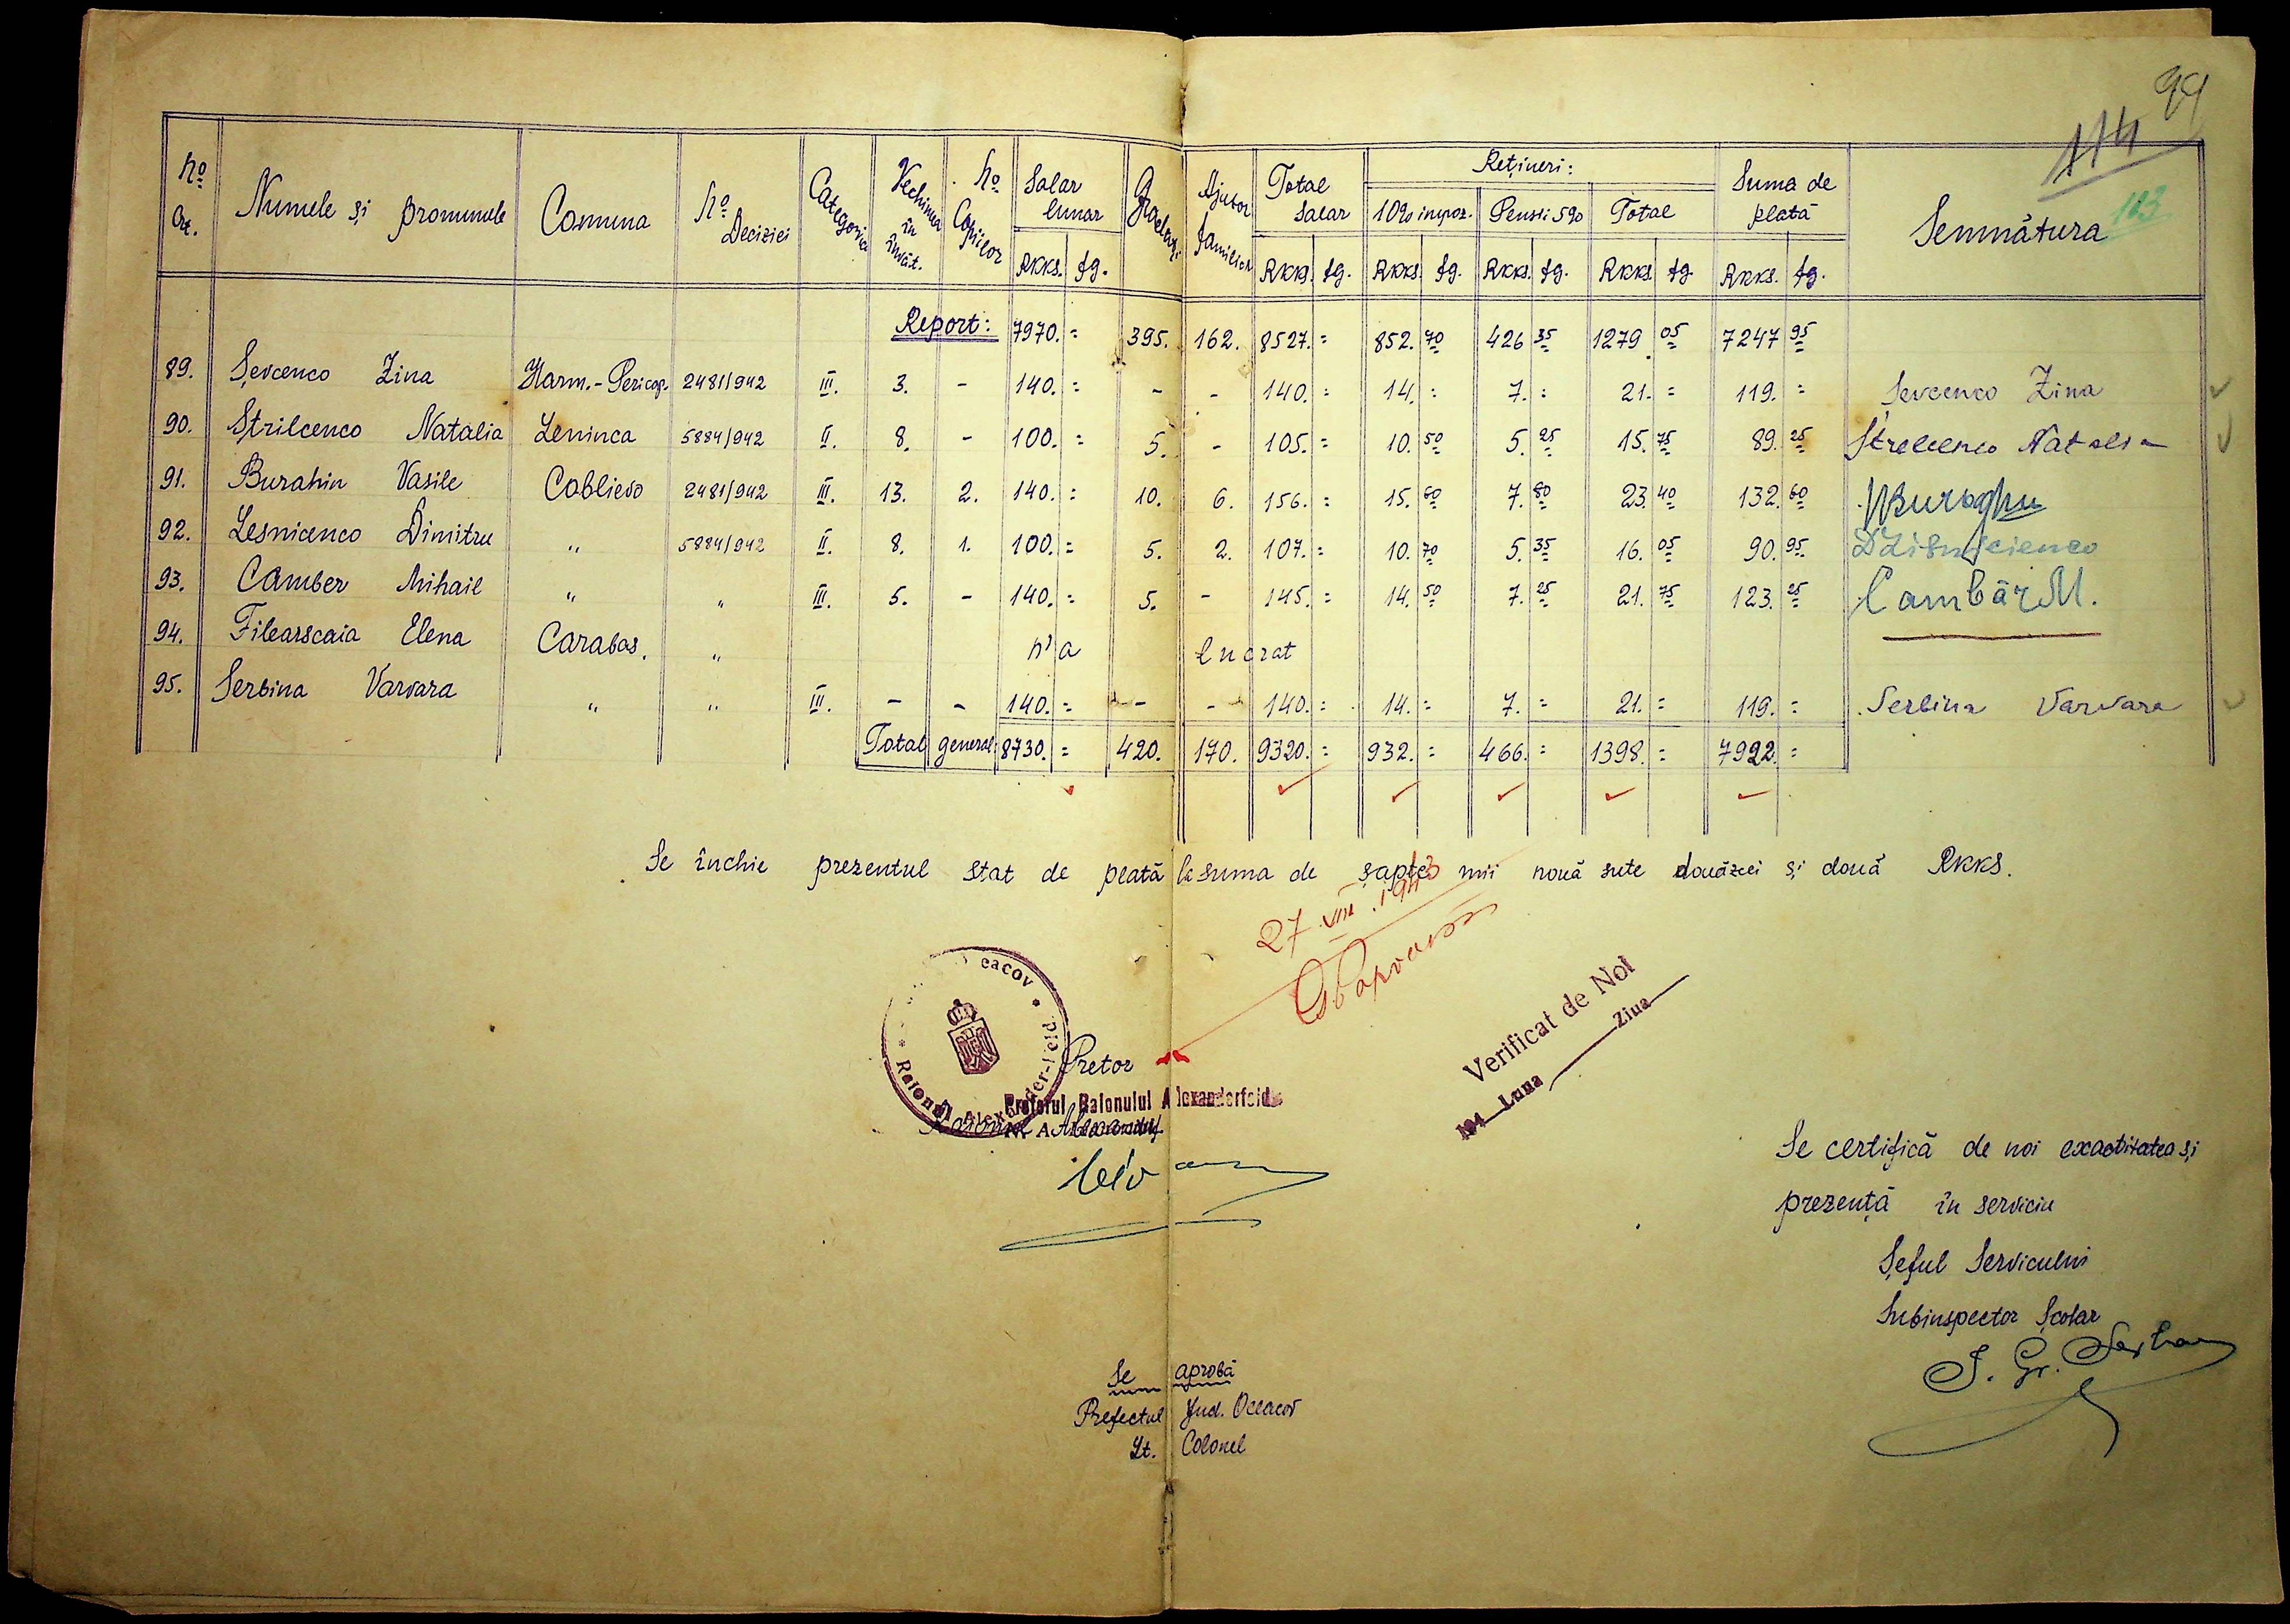 99
114
123
No Crt. Numele și pronumele Comuna No Deciziei Categoria Vechimea în învăt. No Copiilor Salar lunar Gradații Ajutor familiar Total Salar Rețineri: Suma de plată Semnătura
10% impoz. Pensii 5% Total
RKKS. fg. RKKS. fg. RKKS. fg. RKKS. fg. RKKS. fg. RKKS. fg.
Report: 7970.= 395. 162. 8527.= 852.70 426 35 1279.05 7247 95
89. Șevcenco Zina Harm.-Pericop. 2481/942 III. 3. - 140.= - - 140.= 14.= 7.= 21.= 119.= Șevcenco Zina
90. Strilcenco Natalia Leninca 5884/942 II. 8. - 100.= 5. - 105.= 10.50 5.25 15.75 89.25 Strelcenco Natalia
91. Burahin Vasile Coblievo 2481/942 III. 13. 2. 140.= 10. 6. 156.= 15.60 7.80 23.40 132.60
92. Lesnicenco Dimitru " 5884/942 II. 8. 1. 100.= 5. 2. 107.= 10.70 5.35 16.05 90.95
93. Camber Mihail " " III. 5. - 140.= 5. - 145.= 14.50 7.25 21.75 123.25 Cambăr M.
94. Filearscaia Elena Carabas. " n'a lucrat
95. Serbina Varvara " " III. - - 140.= - - 140.= 14.= 7.= 21.= 119.= Serbina Varvara
Total general 8730.= 420. 170. 9320.= 932.= 466.= 1398.= 7992.=
Se închie prezentul stat de plată la suma de șapte mii nouă sute douăzeci și două RKKS.
27.VIII.1943
eacov * Raionul Alexander-feld *
Verificat de Noi
194 Luna Ziua
Pretor
Pretorul Raionului Alexanderfeld
Se certifică de noi exactitatea și
prezență în serviciu
Șeful Serviculni
Subinspector Școlar
Se aprobă
Prefectul Jud. Oceacov
Lt. Colonel